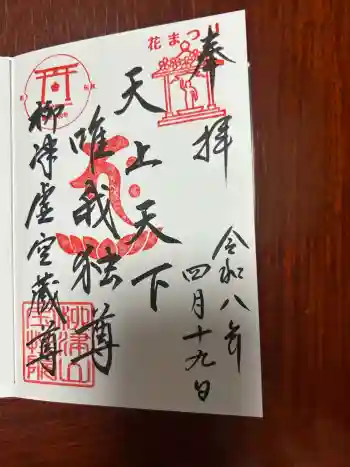 奉拝
花まつり
令和八年
四月十九日
天上天下
唯我独尊
柳津虚空蔵尊